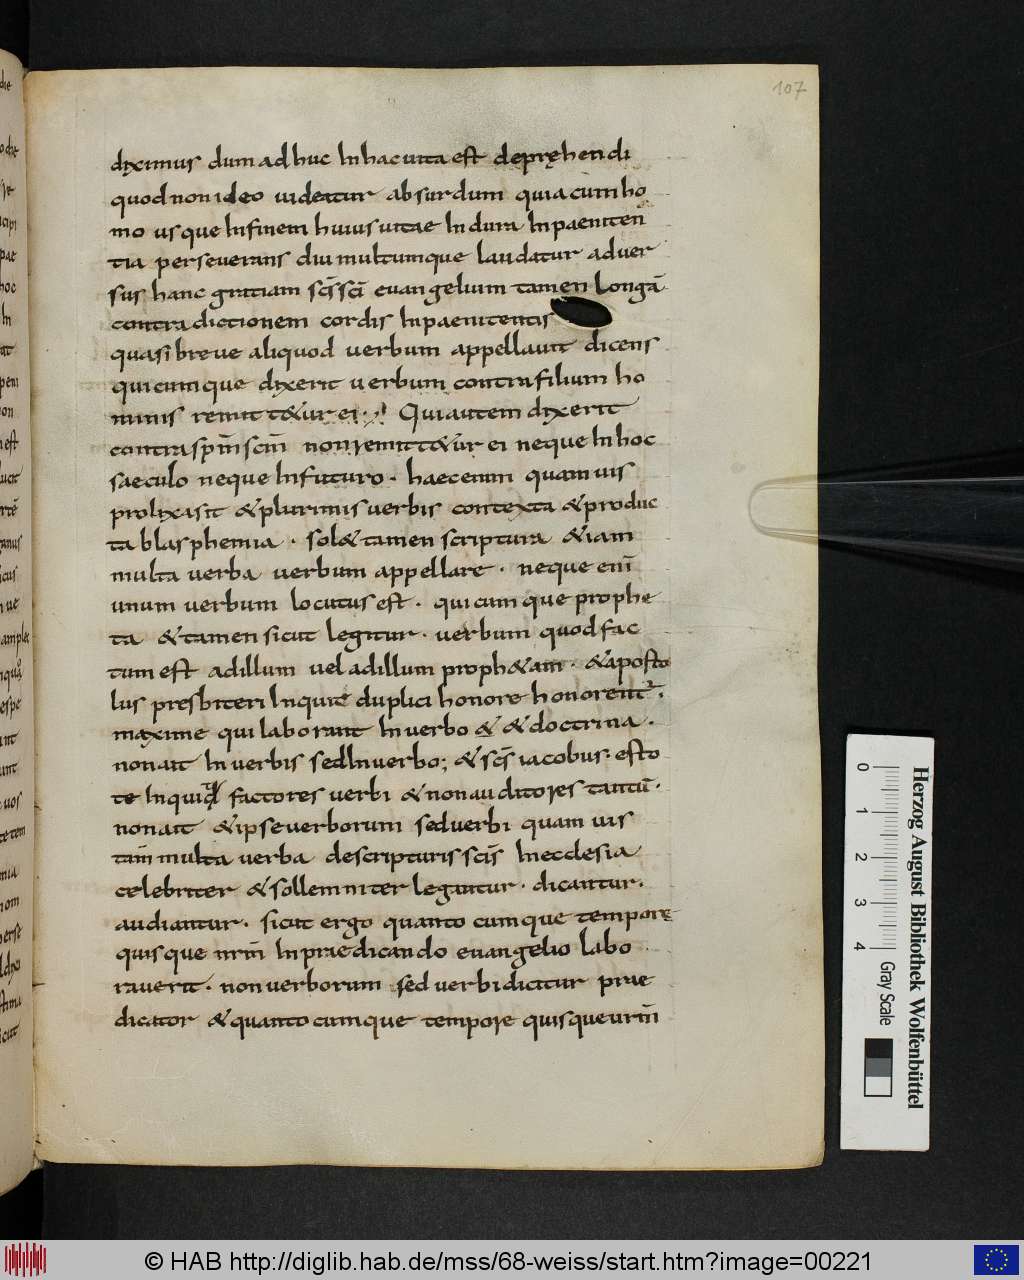 107
diximus dum adhuc In hac uita est depręhendi
quod non ideo uideatur absurdum quia cum ho
mo usque In finem huius uitae In dura Inpaeniten
tia perseuerans diu multumque laudatur aduer
sus hanc gratiam scs̄ sc̄i euangelium tamen Longā
contradictionem cordis Inpaenitentis
quasi breue aliquod verbum appellauit dicens
quicumque dixerit uerbum contra filium ho
minis remitt&ur ei. Qui autem dixerit
contra sp̄m sc̄m non remitt&ur ei neque In hoc
saeculo neque In futuro. haec enim quamuis
prolixa sit & plurimis uerbis contexta & produc
ta blasphemia. sol& tamen scriptura &iam
multa uerba uerbum appellare. neque enī
unum uerbum locutus est. quicumque prophe
ta & tamen sicut legitur. uerbum quod fac
tum est ad illum uel ad illum proph&am. & aposto
lus presbiteri Inquit duplici honore honorent̄.
maxime qui laborant In uerbo & & doctrina.
non ait In uerbis sed In uerbo; & scs̄ iacobus. esto
te Inquid factores uerbi & non auditores tantū.
non ait & ipse uerborum sed uerbi quamuis
tam̄ multa uerba de scripturis scīs In ecclesia
celebriter & sollemniter legantur. dicantur.
audiantur. sicut ergo quantocumque tempore
quisque nrm̄ In praedicando euangelio labo
rauerit. non uerborum sed uerbi dicitur prae
dicator & quantocumque tempore quisque urm̄
Herzog August Bibliothek Wolfenbüttel
0 1 2 3 4 Gray Scale
© HAB http://diglib.hab.de/mss/68-weiss/start.htm?image=00221